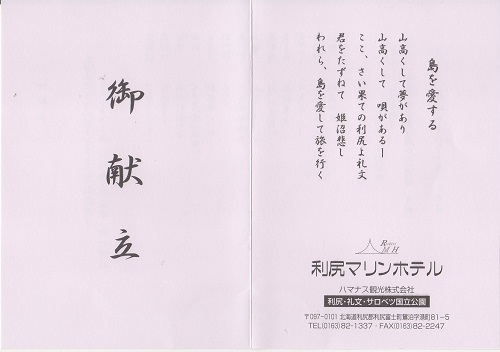 島を愛する
山高くして夢があり
山高くして 唄があるー
ここ、さい果ての利尻よ礼文
君をたずねて 姫沼悲し
われら、島を愛して旅を行く
御献立
Rishiri
M H
利尻マリンホテル
ハマナス観光株式会社
利尻・礼文・サロベツ国立公園
〒097-0101 北海道利尻郡利尻富士町鴛泊字港町81-5
TEL(0163)82-1337・FAX(0163)82-2247